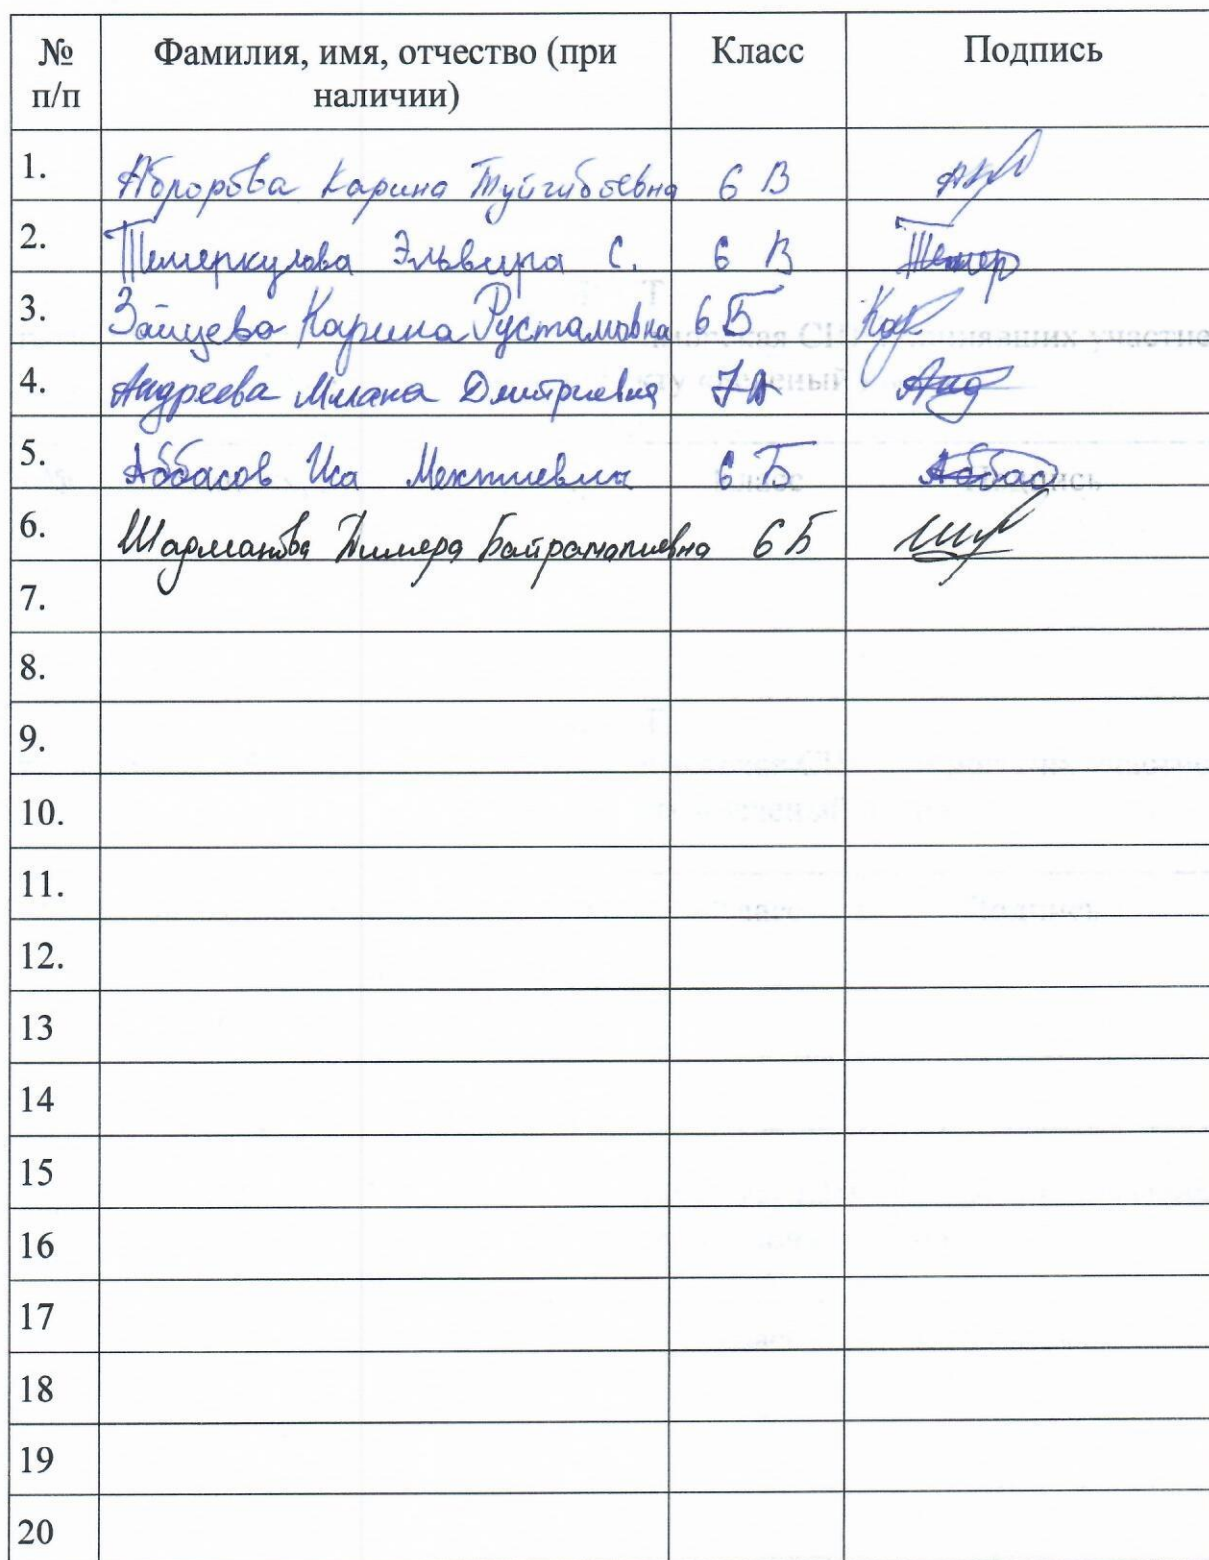 № п/п Фамилия, имя, отчество (при наличии) Класс Подпись
1. Абророва Карина Туйгибоевна 6 В
2. Темеркулова Эльвира С. 6 В Темер
3. Зайцева Карина Рустамовна 6 Б Кар
4. Андреева Милана Дмитриевна 7А Анд
5. Аббасов Иса Мехтиевич 6 Б Аббас
6. 6 Б
7.
8.
9.
10.
11.
12.
13
14
15
16
17
18
19
20